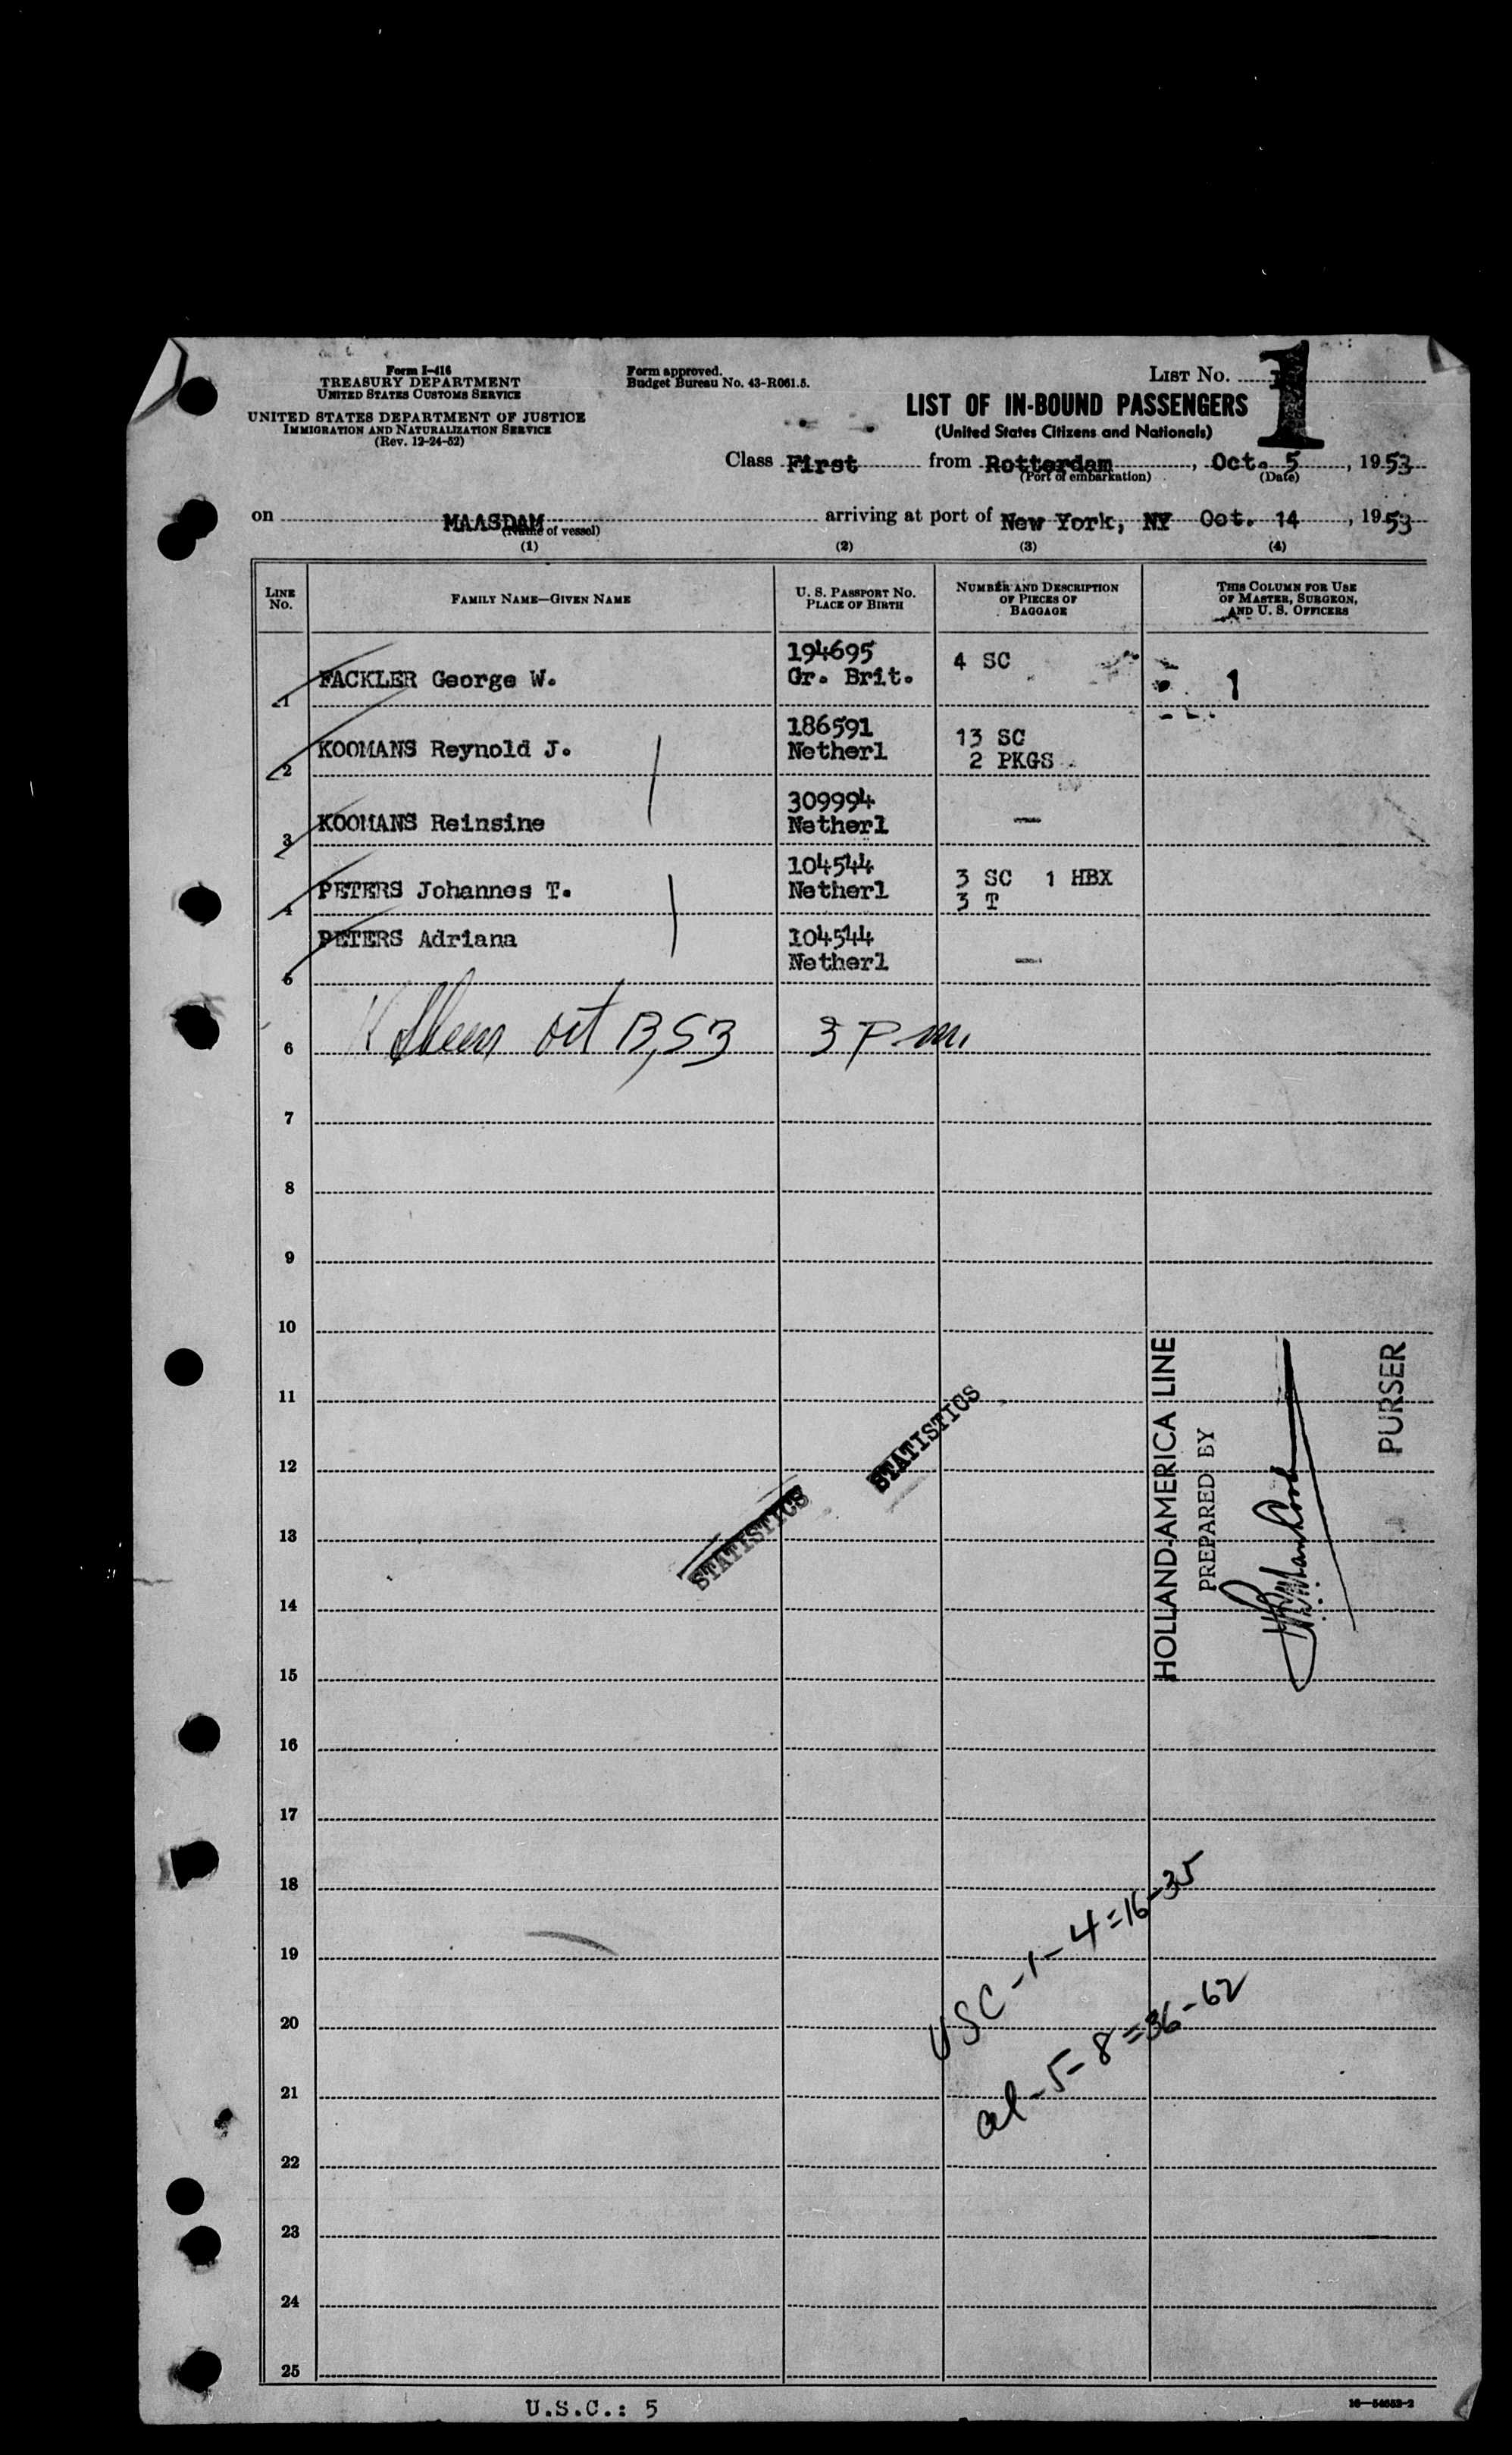 Form I-416
TREASURY DEPARTMENT
UNITED STATES CUSTOMS SERVICE
UNITED STATES DEPARTMENT OF JUSTICE
IMMIGRATION AND NATURALIZATION SERVICE
(Rev. 12-24-52)
Form approved.
Budget Bureau No. 43-R061.5.
LIST No. 1
LIST OF IN-BOUND PASSENGERS
(United States Citizens and Nationals)
Class First from Rotterdam, Oct. 5, 1953
(Port of embarkation) (Date)
on MAASDAM arriving at port of New York, NY Oct. 14, 1953
(Name of vessel)
(1) (2) (3) (4)
LINE No. FAMILY NAME—GIVEN NAME U. S. PASSPORT NO. PLACE OF BIRTH NUMBER AND DESCRIPTION OF PIECES OF BAGGAGE THIS COLUMN FOR USE OF MASTER, SURGEON, AND U. S. OFFICERS
1 FACKLER George W. 194695 Gr. Brit. 4 SC 1
2 KOOMANS Reynold J. 186591 Netherl 13 SC 2 PKGS
3 KOOMANS Reinsine 309994 Netherl —
4 PETERS Johannes T. 104544 Netherl 3 SC 1 HBX 3 T
5 PETERS Adriana 104544 Netherl —
6 oct 13, 53 3 P m.
7
8
9
10
11
12
13
14
15
16
17
18
19
20
21
22
23
24
25
STATISTICS
STATISTICS
HOLLAND-AMERICA LINE
PREPARED BY
PURSER
USC-1-4=16-35
al-5-8=36-62
U.S.C.: 5
16—54652-2